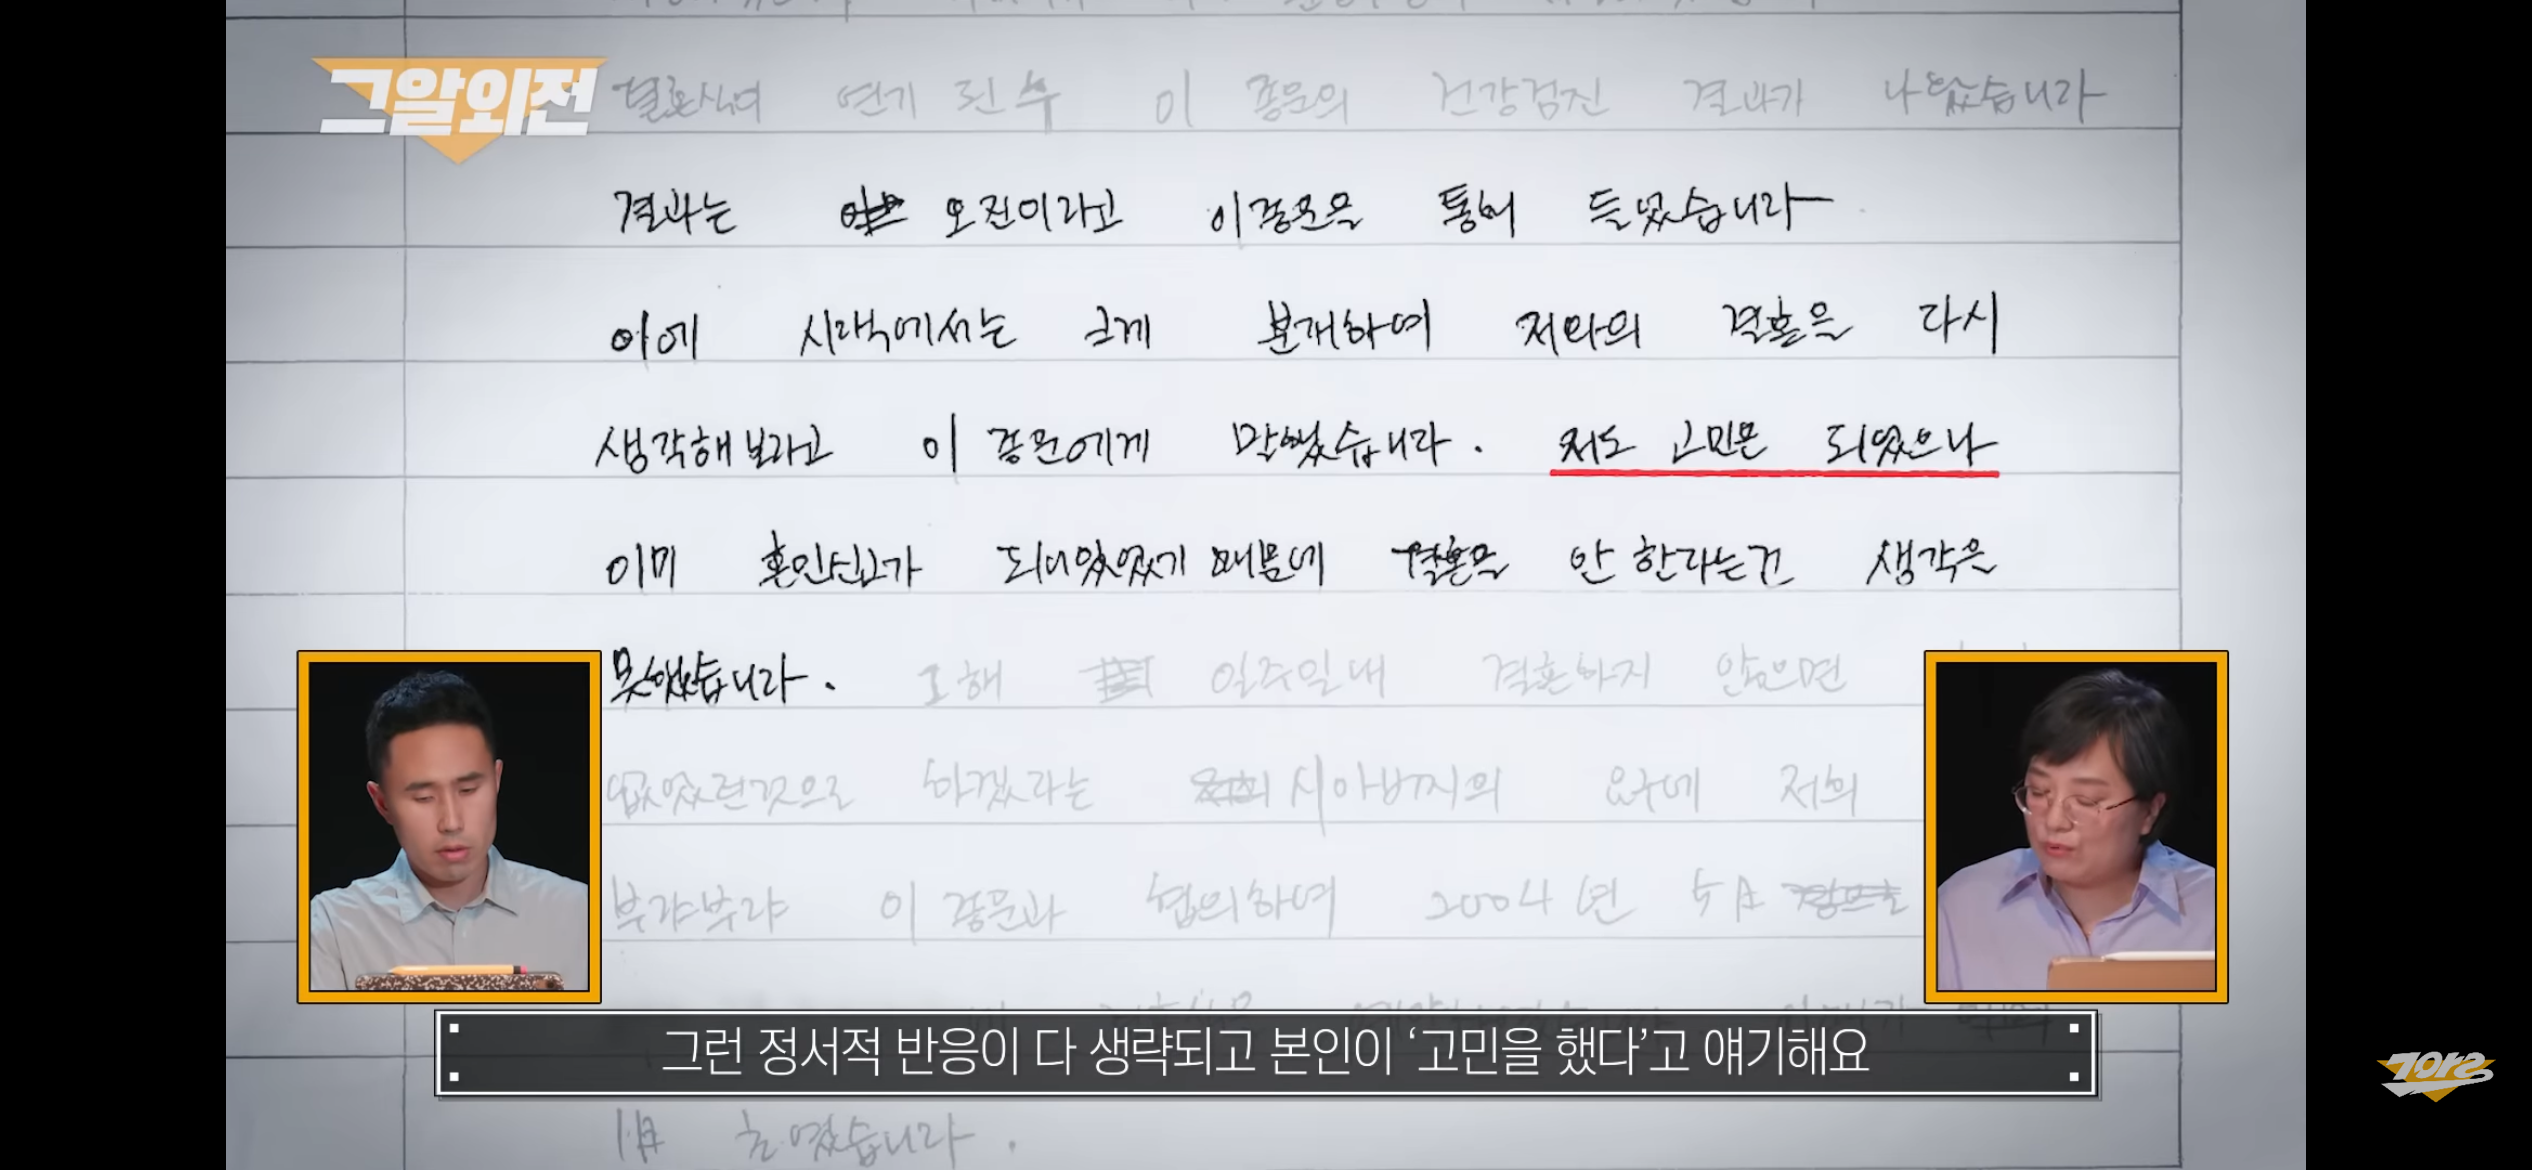 그알외전
결혼식이 연기 된 후 이종문의 건강검진 결과가 나왔습니다
결과는 오진이라고 이종문을 통해 들었습니다
이에 시댁에서는 크게 분개하여 저와의 결혼을 다시
생각해보라고 이종문에게 말했습니다. 저도 고민은 되었으나
이미 혼인신고가 되어있었기 때문에 결혼을 안 한다는건 생각은
못했습니다. 그해 일주일내 결혼하지 않으면
없었던것으로 하겠다는 시아버지의 요구에 저희
부랴부랴 이종문과 협의하여 2004년 5月
그런 정서적 반응이 다 생략되고 본인이 ‘고민을 했다’고 얘기해요
그알